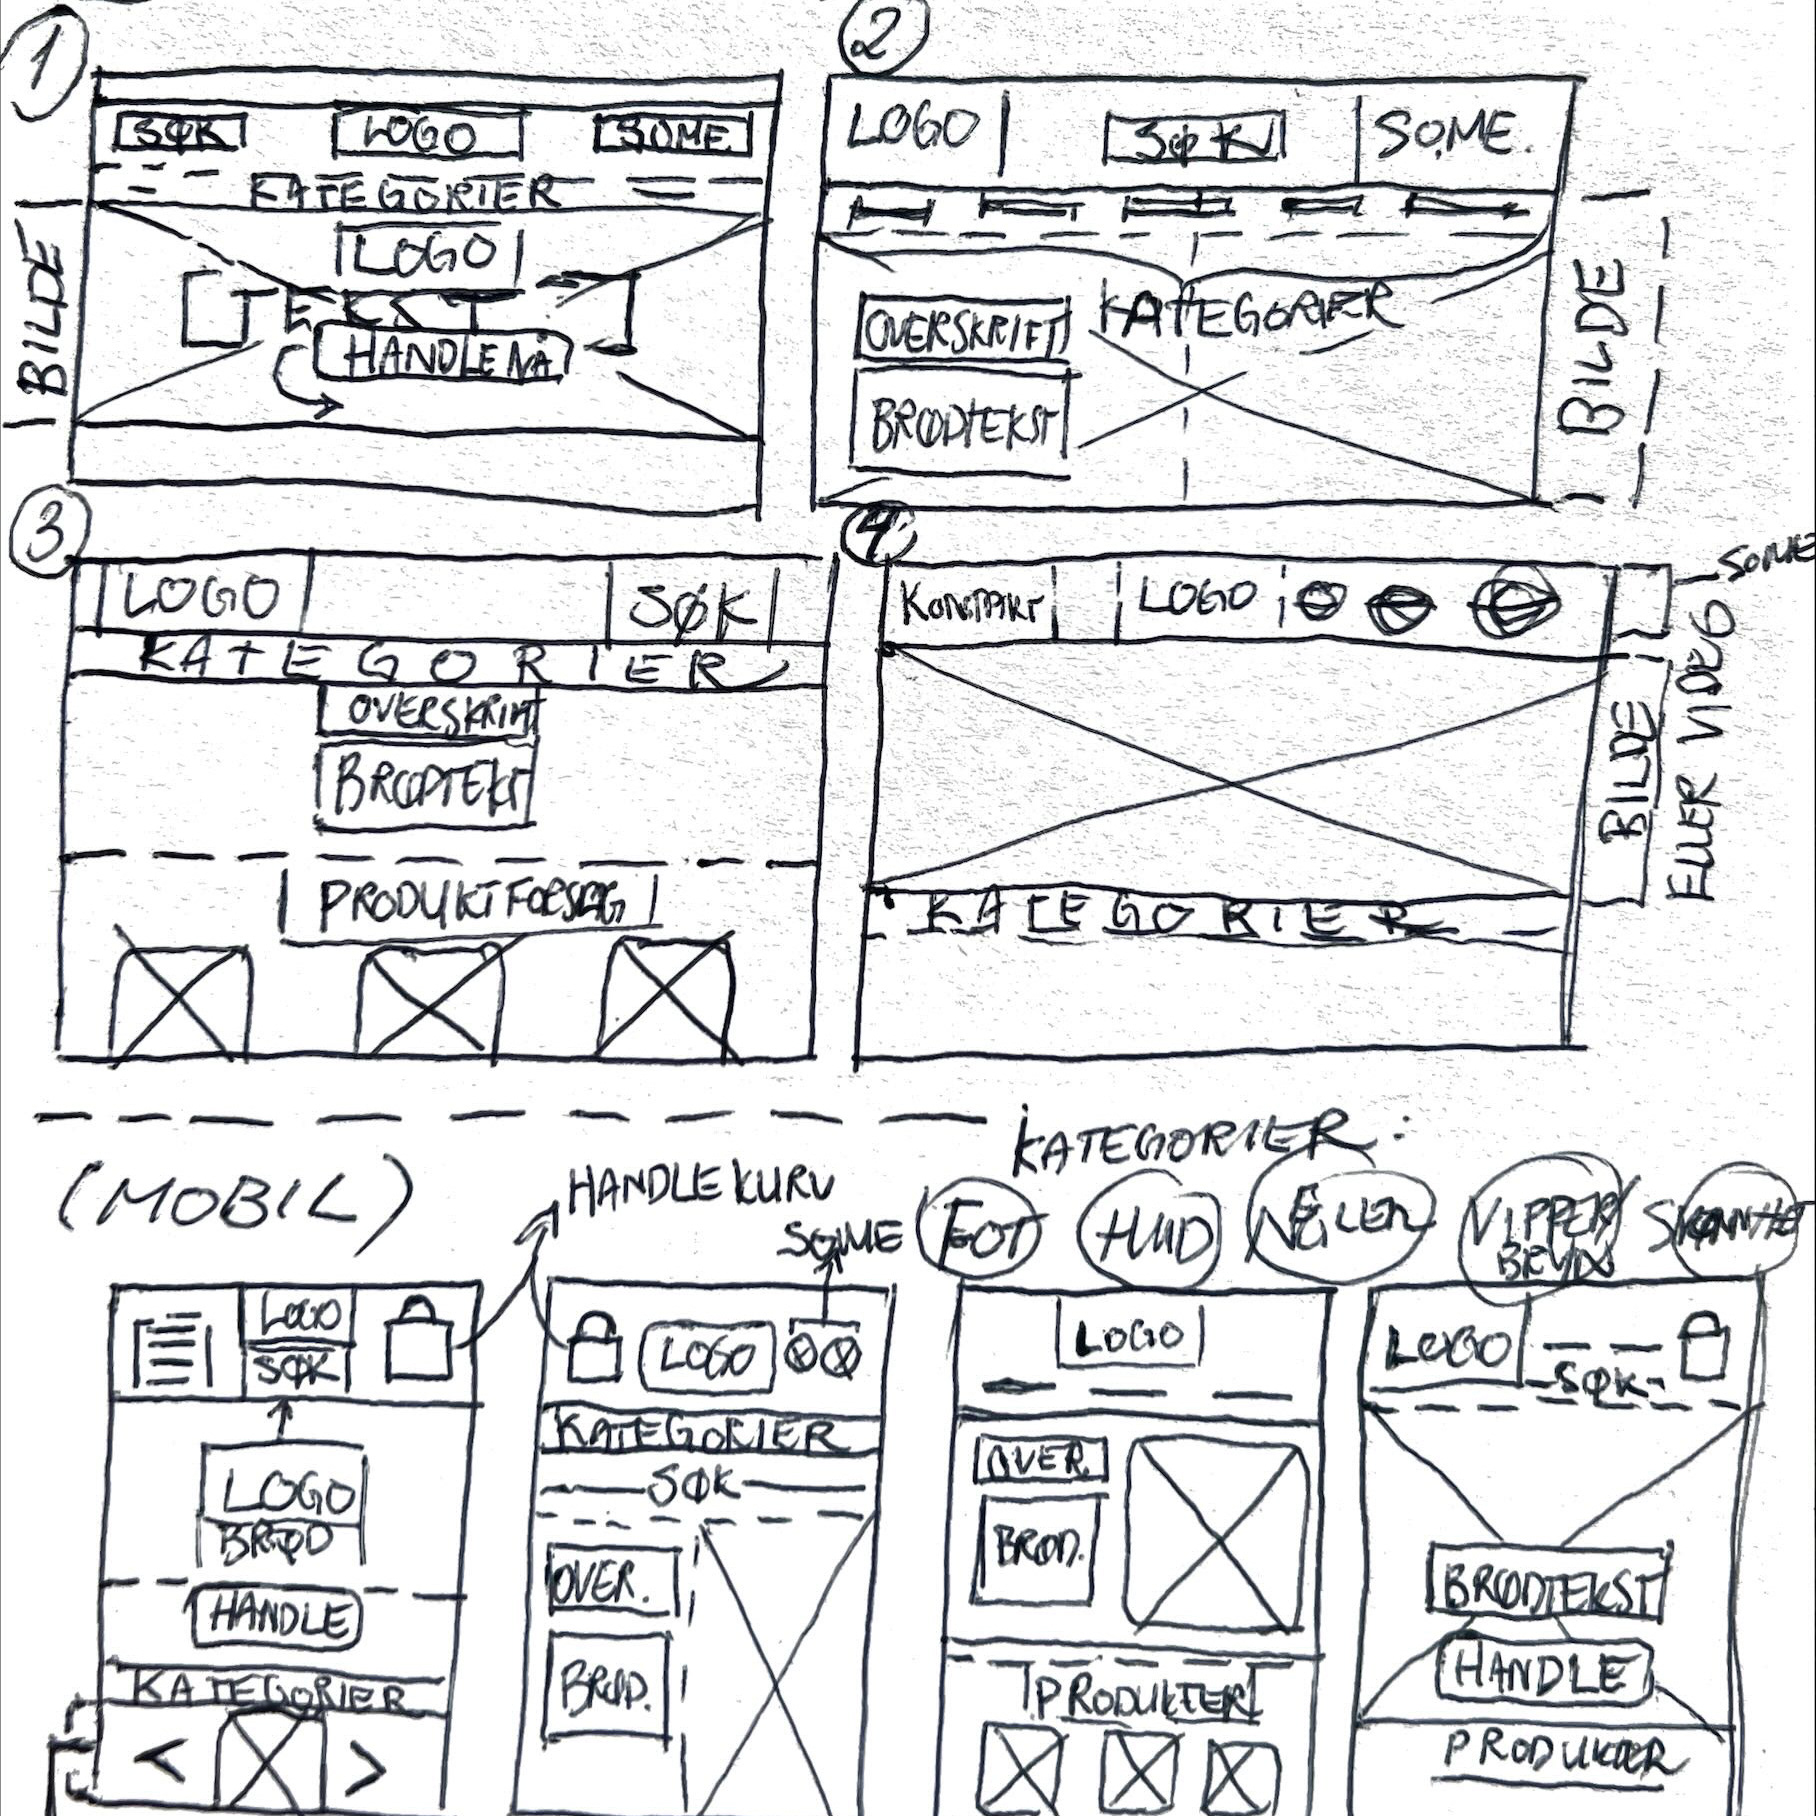 1
SØK LOGO SOME
KATEGORIER
LOGO
TEKST
HANDLE NÅ
BILDE
2
LOGO SØK SOME.
KATEGORIER
OVERSKRIFT
BRØDTEKST
BILDE
3
LOGO SØK
KATEGORIER
OVERSKRIFT
BRØDTEKST
PRODUKTFORSLAG
4
KONTAKT LOGO
SOME
BILDE
ELLER VIDEO
KATEGORIER
(MOBIL)
HANDLEKURV
SOME
KATEGORIER:
FOT HUD NEGLER VIPPER/ SKJØNNHET
BRYN
LOGO
SØK
LOGO
BRØD
HANDLE
KATEGORIER
< >
LOGO
KATEGORIER
SØK
OVER.
BRØD.
LOGO
OVER.
BRØD.
PRODUKTER
LOGO SØK
BRØDTEKST
HANDLE
PRODUKTER